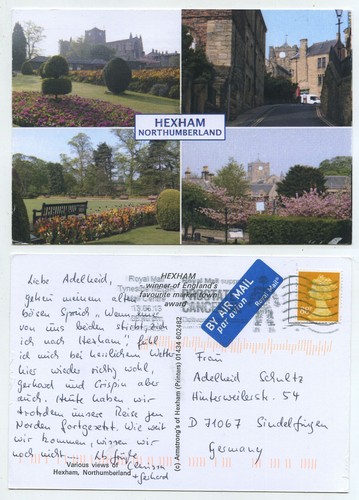 HEXHAM
NORTHUMBERLAND
HEXHAM
winner of England's
favourite market town
award
Royal Mail
Tyneside
BY AIR MAIL
par avion
Royal Mail
(c) Armstrong's of Hexham (Printers) 01434 602482
Liebe Adelheid,
gegen meinen alten
bösen Spruch, "Wenn einer
von uns beiden stirbt, zieh
ich nach Hexham," fühl
ich mich bei herrlichem Wetter
hier wieder richtig wohl,
Gerhard und Crispin aber
auch. Heute haben wir
trotzdem unsere Reise gen
Norden fortgesetzt. Wie weit
wir kommen, wissen wir
noch nicht.
+ Gerhard
Various views of
Hexham, Northumberland
Frau
Adelheid Schultz
Hinterweilerstr. 54
D 71067 Sindelfingen
Germany